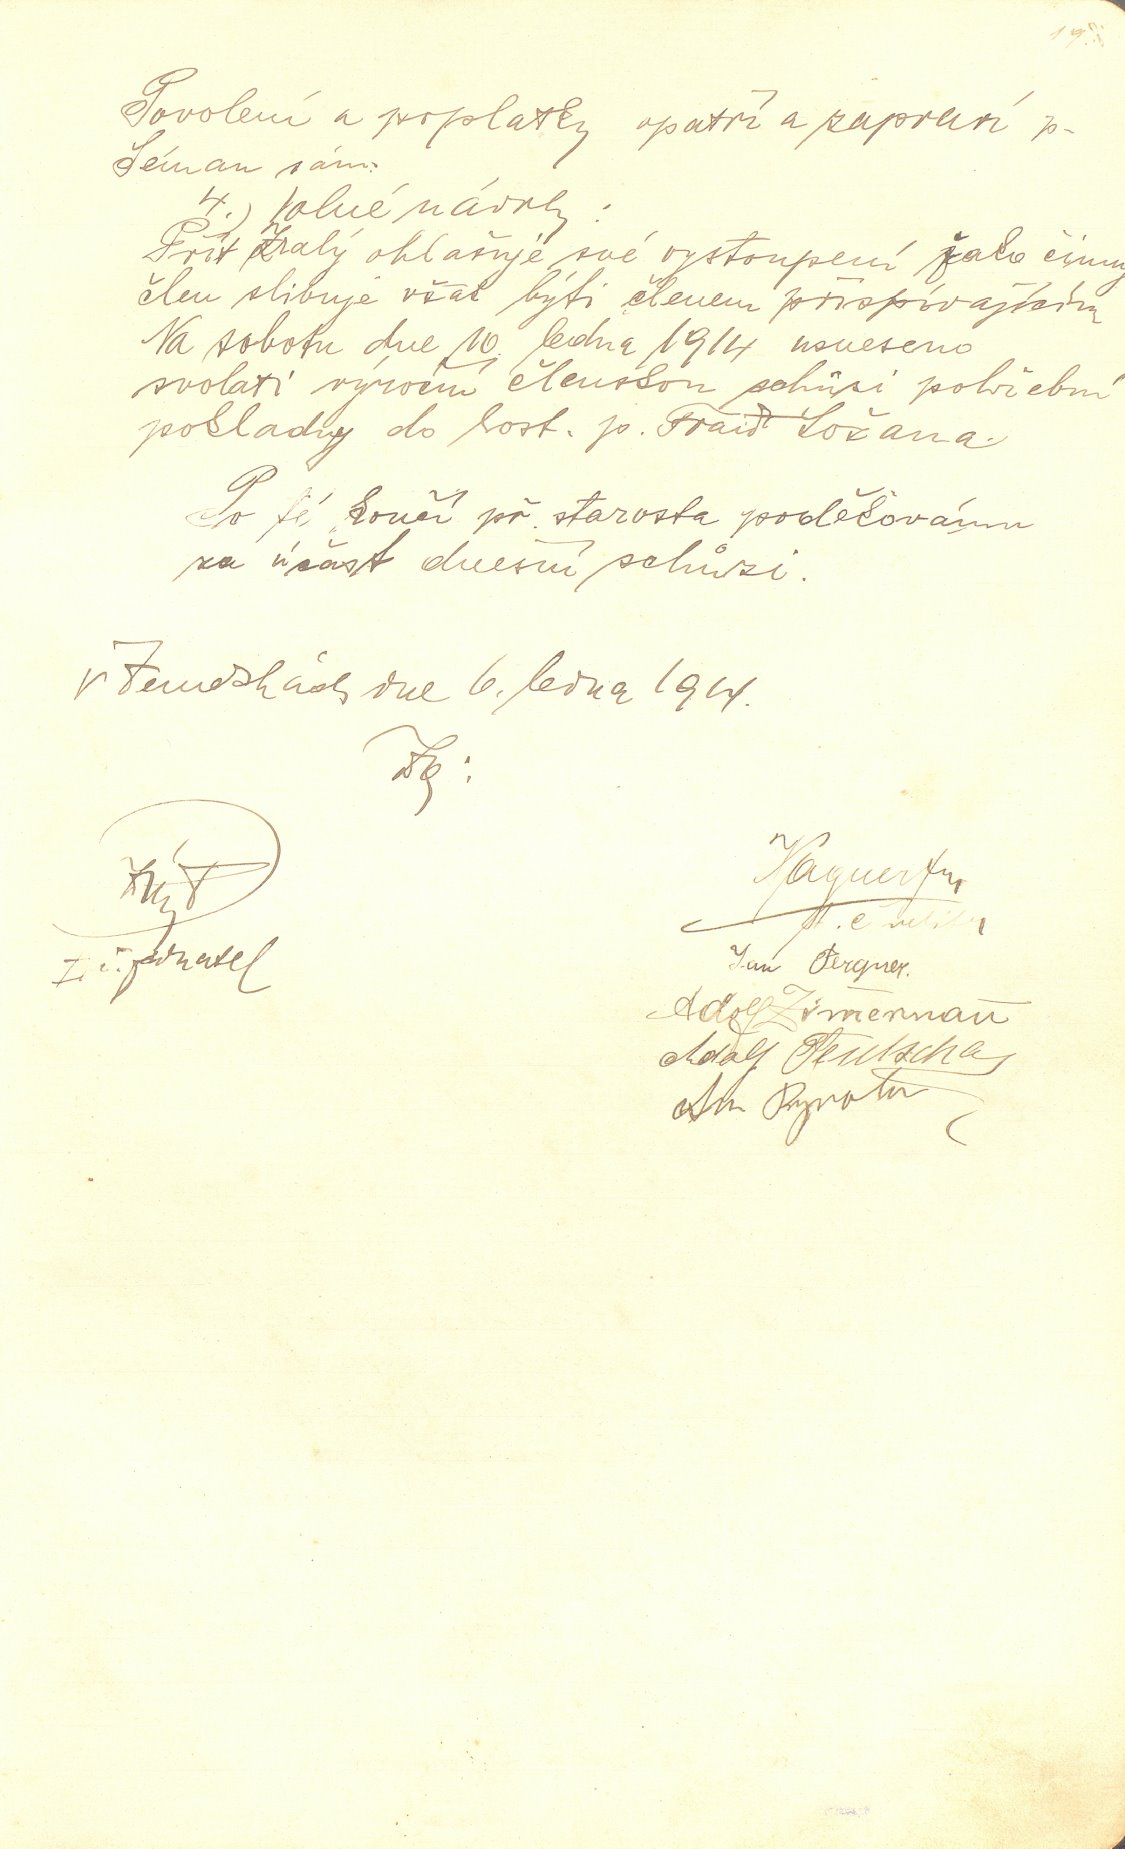 Povolení a poplatky opatří a zapraví p.
Šéman sám.
4.) Volné návrhy:
Přít Zralý ohlašuje své vystoupení jako činný
člen slibuje však býti členem přispívajícím
Na sobotu dne 10. ledna 1914 usneseno
svolati výroční členskou schůzi pohřební
pokladny do host. p. Frant Ložana.
Po té končí př. starosta poděkováním
za účast dnešní schůzi.
V dne 6. ledna 1914.
jednatel
Wagner
Jan Pergner.
Adolf Zimermann
Adolf